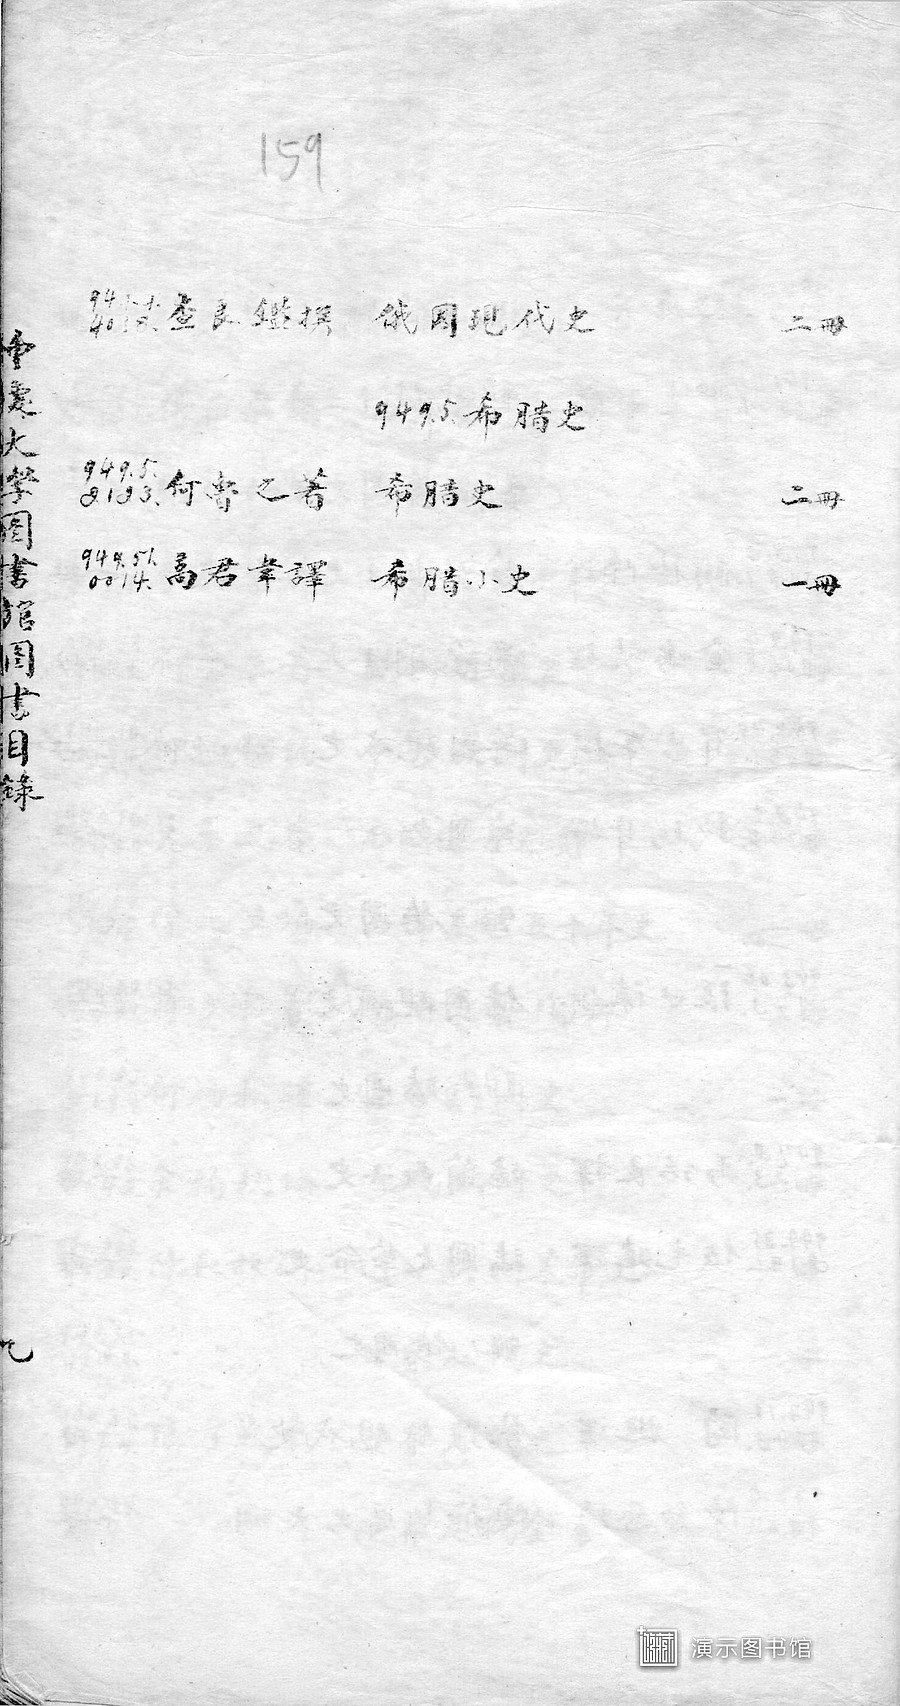 159
查良鑑撰 俄国現代史 二冊
949.5. 希腊史
949.5. 8183. 何魯之著 希腊史 二冊
949.51. 0014. 高君韋譯 希腊小史 一冊
重慶大學图書館图書目錄
九
演示图书馆